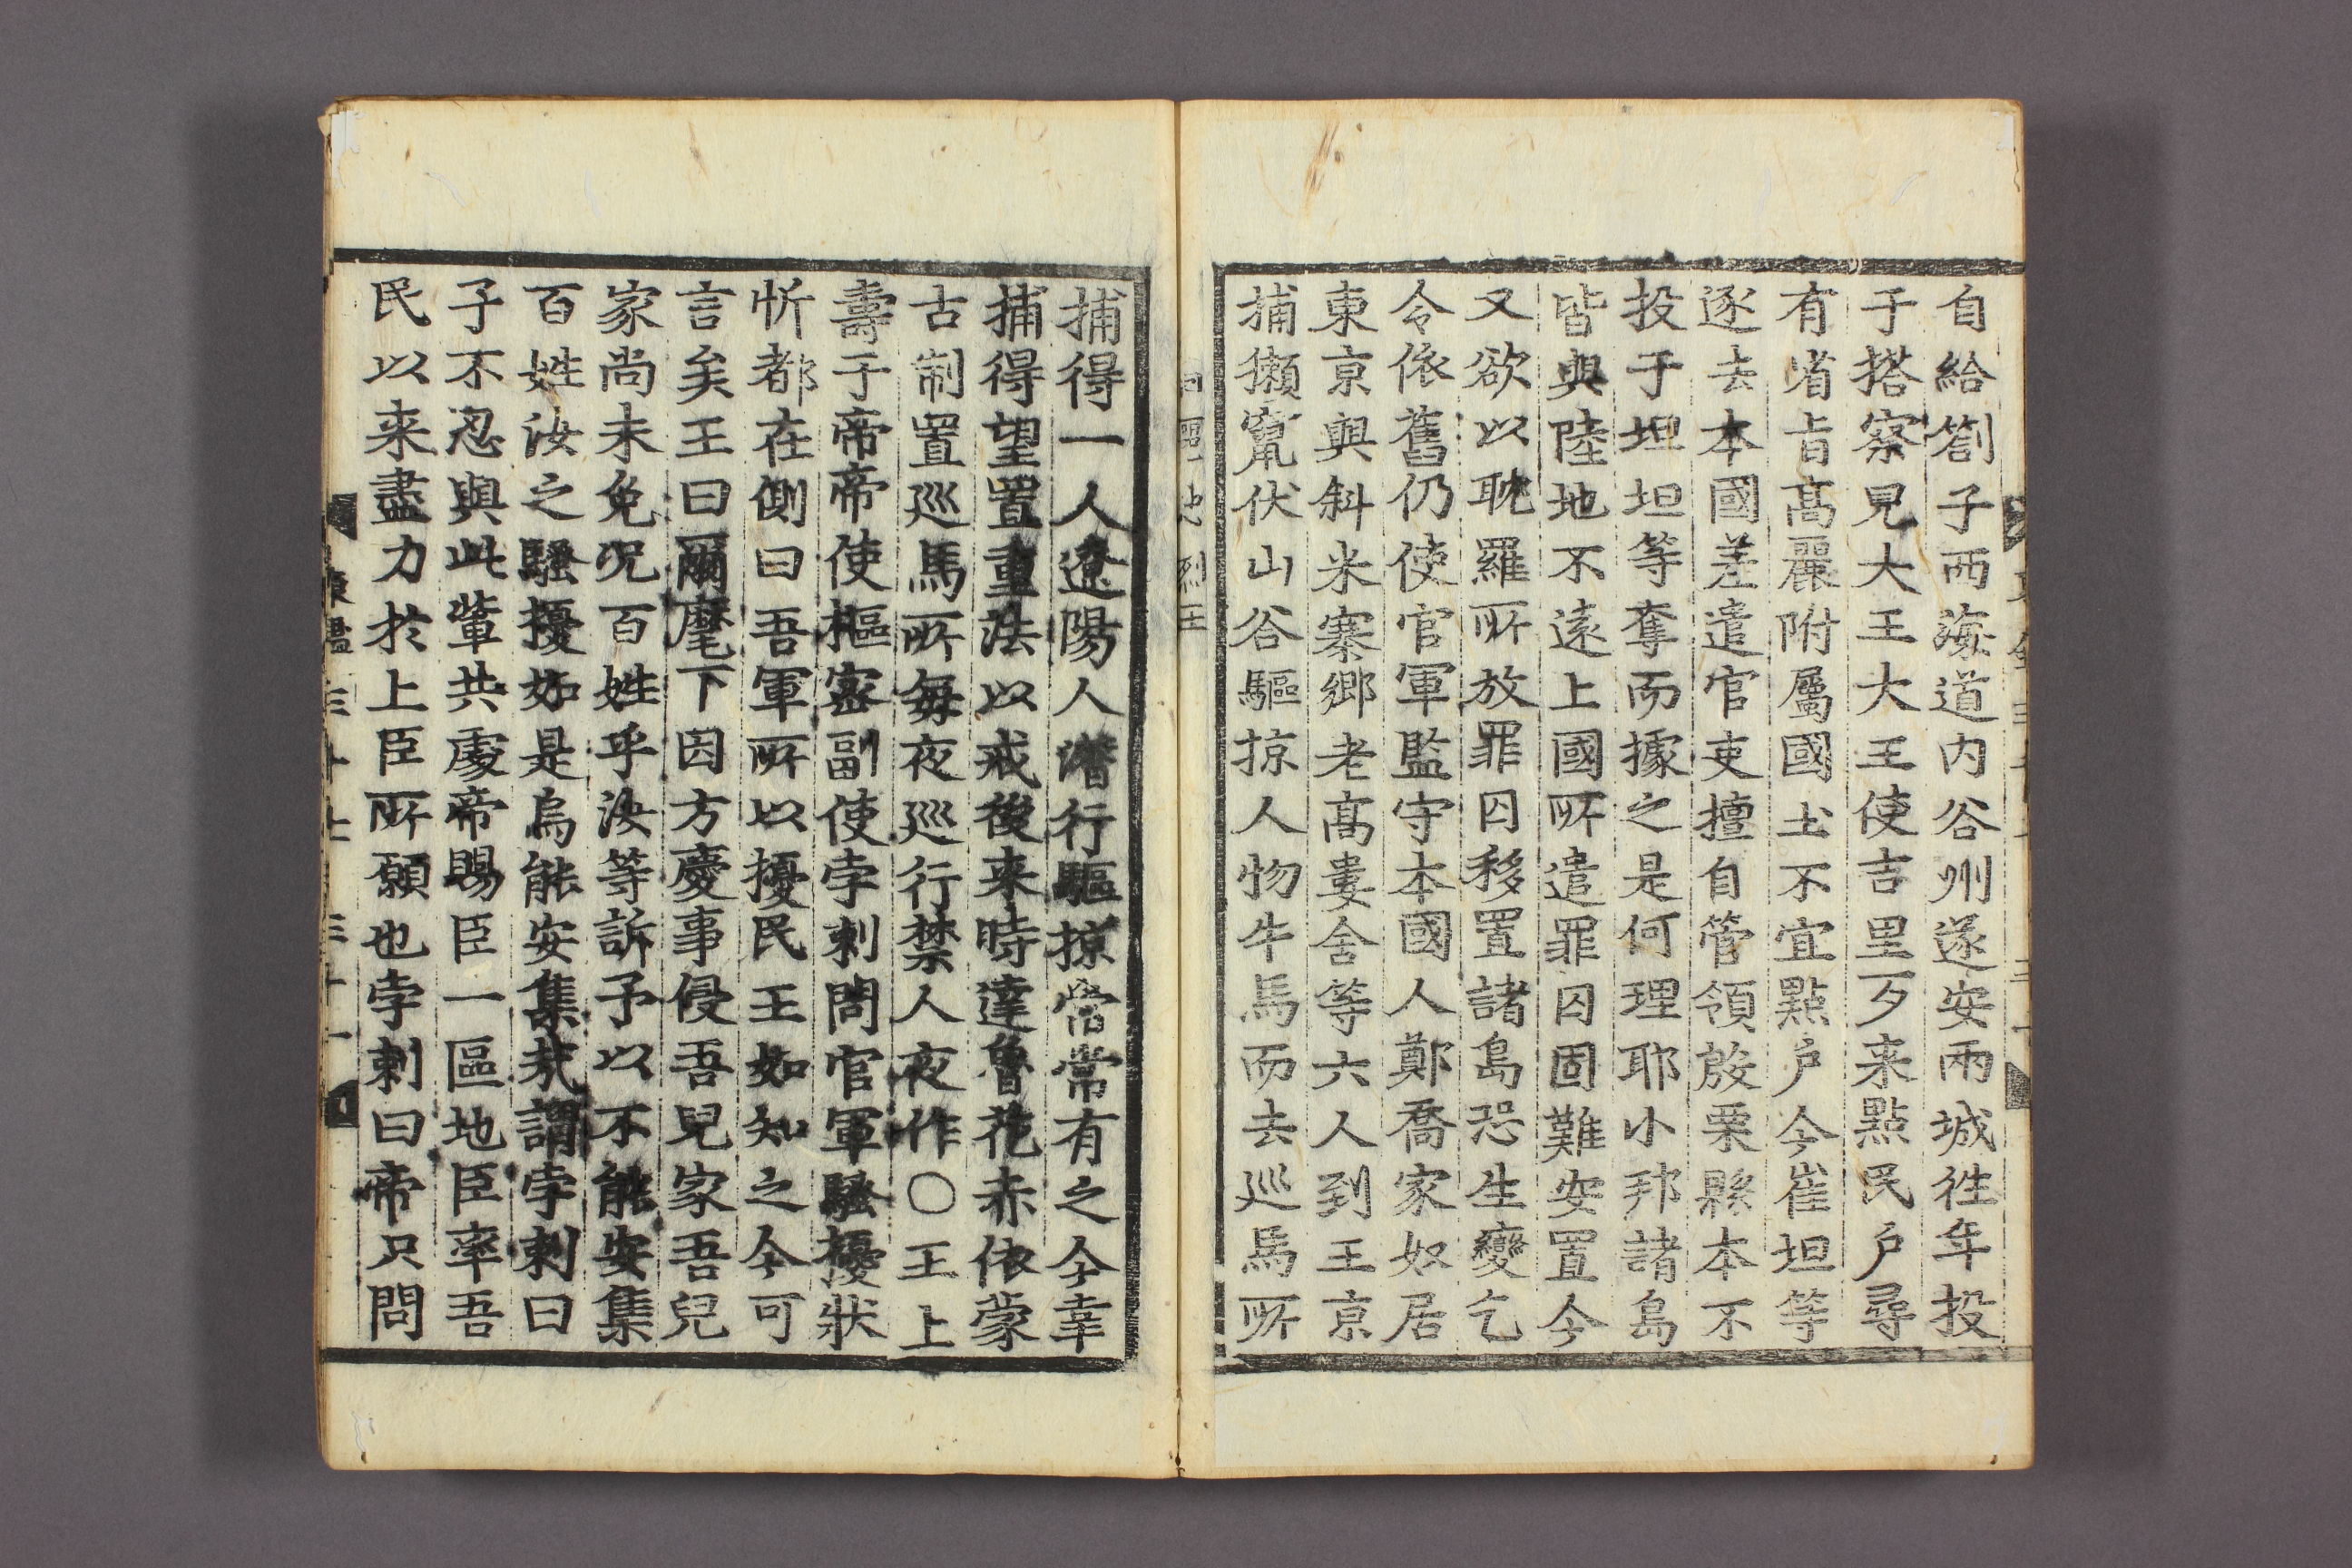 自給劄子西海道内谷州遂安兩城徃年投
于搭察見大王大王使吉里歹来點民戶尋
有省旨髙麗附屬國土不宜點戶今崔坦等
逐去本國差遣官吏擅自管領殷栗縣本不
投于坦坦等奪而據之是何理耶小邦諸島
皆與陸地不遠上國所遣罪囚固難安置今
又欲以耽羅所放罪囚移置諸島恐生變乞
令依舊仍使官軍監守本國人鄭喬家奴居
東京與斜米寨鄉老髙婁舍等六人到王京
捕獺竄伏山谷驅掠人物牛馬而去巡馬所
四 忠烈王
捕得一人遼陽人潜行驅掠當常有之今幸
捕得望置重法以戒後来時達魯花赤依蒙
古制置巡馬所每夜巡行禁人夜作○王上
壽于帝帝使樞密副使孛剌問官軍騷擾狀
忻都在側曰吾軍所以擾民王如知之今可
言矣王曰爾麾下因方慶事侵吾兒家吾兒
家尚未免况百姓乎汝等訴予以不能安集
百姓汝之騷擾如是烏能安集㢤謂孛剌曰
子不忍與此軰共處帝賜臣一區地臣率吾
民以来盡力於上臣所願也孛剌曰帝只問
東鑑三十七 三十一